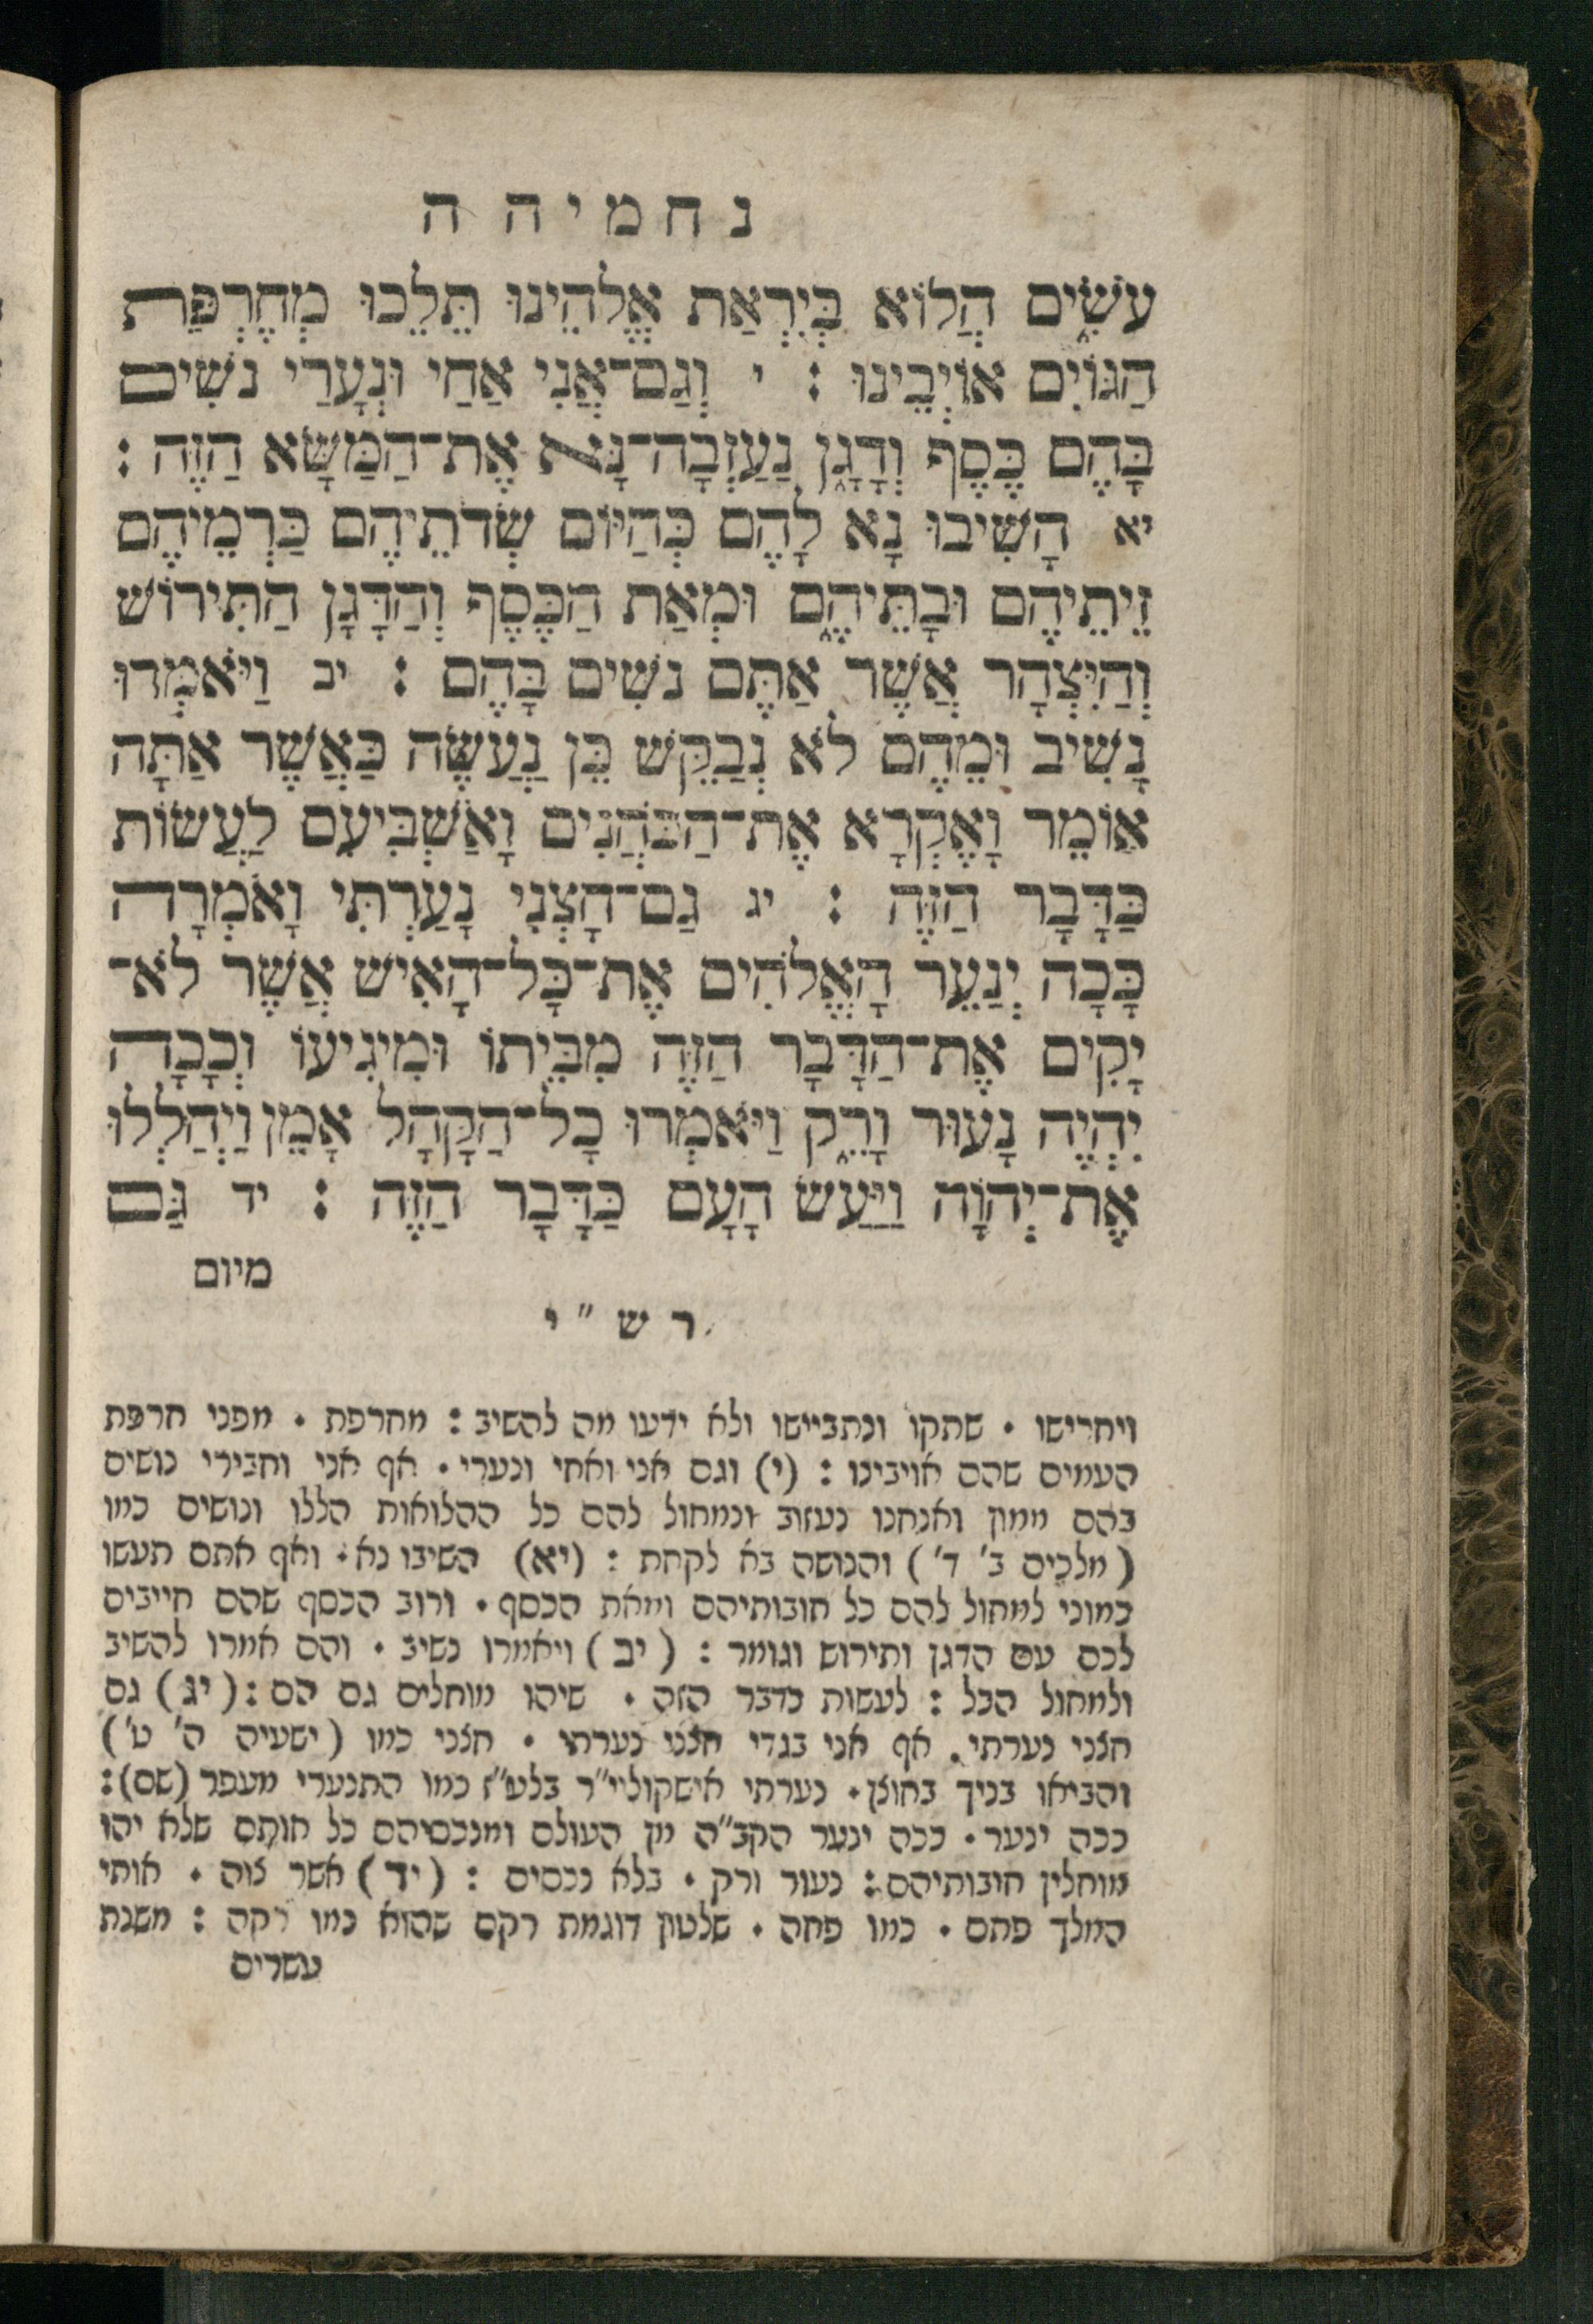 נחמיה ה
עֹשִׂ֑ים הֲלוֹא בְּיִרְאַת אֱלֹהֵינוּ תֵּלֵכוּ מְחֶרְפַּת
הַגּוֹיִם אוֹיְבֵינוּ : י וְגַם־אֲנִי אַחַי וּנְעָרַי נֹשִׁים
בָּהֶם כֶּסֶף וְדָגָ֑ן נַעַזְבָה־נָּא אֶת־הַמַּשָּׁא הַזֶּה :
יא הָשִׁיבוּ נָא לָהֶם כְּהַיּוֹם שְׂדֹתֵיהֶם כַּרְמֵיהֶם
זֵיתֵיהֶם וּבָתֵּיהֶ֑ם וּמְאַת הַכֶּסֶף וְהַדָּגָן הַתִּירוֹשׁ
וְהַיִּצְהָר אֲשֶׁר אַתֶּם נֹשִׁים בָּהֶם : יב וַיֹּאמְרוּ
נָשִׁיב וּמֵהֶם לֹא נְבַקֵּשׁ כֵּן נַעֲשֶׂה כַּאֲשֶׁר אַתָּה
אוֹמֵר וָאֶקְרָא אֶת־הַכֹּהֲנִים וָאַשְׁבִּיעֵם לַעֲשׂוֹת
כַּדָּבָר הַזֶּה : יג גַּם־חָצְנִי נָעַרְתִּי וָאֹמְרָה
כָּכָה יְנַעֵר הָאֱלֹהִים אֶת־כָּל־הָאִישׁ אֲשֶׁר לֹא־
יָקִים אֶת־הַדָּבָר הַזֶּה מִבֵּיתוֹ וּמִיגִיעוֹ וְכָכָה
יִהְיֶה נָעוּר וָרֵ֑ק וַיֹּאמְרוּ כָל־הַקָּהָל אָמֵן וַיְהַלְלוּ
אֶת־יְהוָֹה וַיַּעַשׂ הָעָם כַּדָּבָר הַזֶּה : יד גַּם
מיום
רש״י
ויחרישו · שתקו ונתביישו ולא ידעו מה להשיב : מחרפת · מפני חרפת
העמים שהם אויבינו : (י) וגם אני ואחי ונערי · אף אני וחבירי נושים
בהם ממון ואנחנו נעזוב ונמחול להם כל ההלואות הללו ונושים כמו
(מלכים ב' ד') והנושה בא לקחת : (יא) השיבו נא · ואף אתם תעשו
כמוני למחול להם כל חובותיהם ומאת הכסף · ורוב הכסף שהם חייבים
לכם עם הדגן ותירוש וגומר : (יב) ויאמרו נשיב · והם אמרו להשיב
ולמחול הכל : לעשות כדבר הזה · שיהו מוחלים גם הם : (יג) גם
חצני נערתי · אף אני בגדי חצני נערתי · חצני כמו (ישעיה ה' ט')
והביאו בניך בחוצן · נערתי אישקוליי״ר בלע״ז כמו התנערי מעפר (שם) :
ככה ינער · ככה ינער הקב״ה מן העולם ומנכסיהם כל אותם שלא יהו
מוחלין חובותיהם : נעור ורק · בלא נכסים : (יד) אשר צוה · אותי
המלך פחם · כמו פחה · שלטון דוגמת רקם שהוא כמו רקה : משנת
עשרים